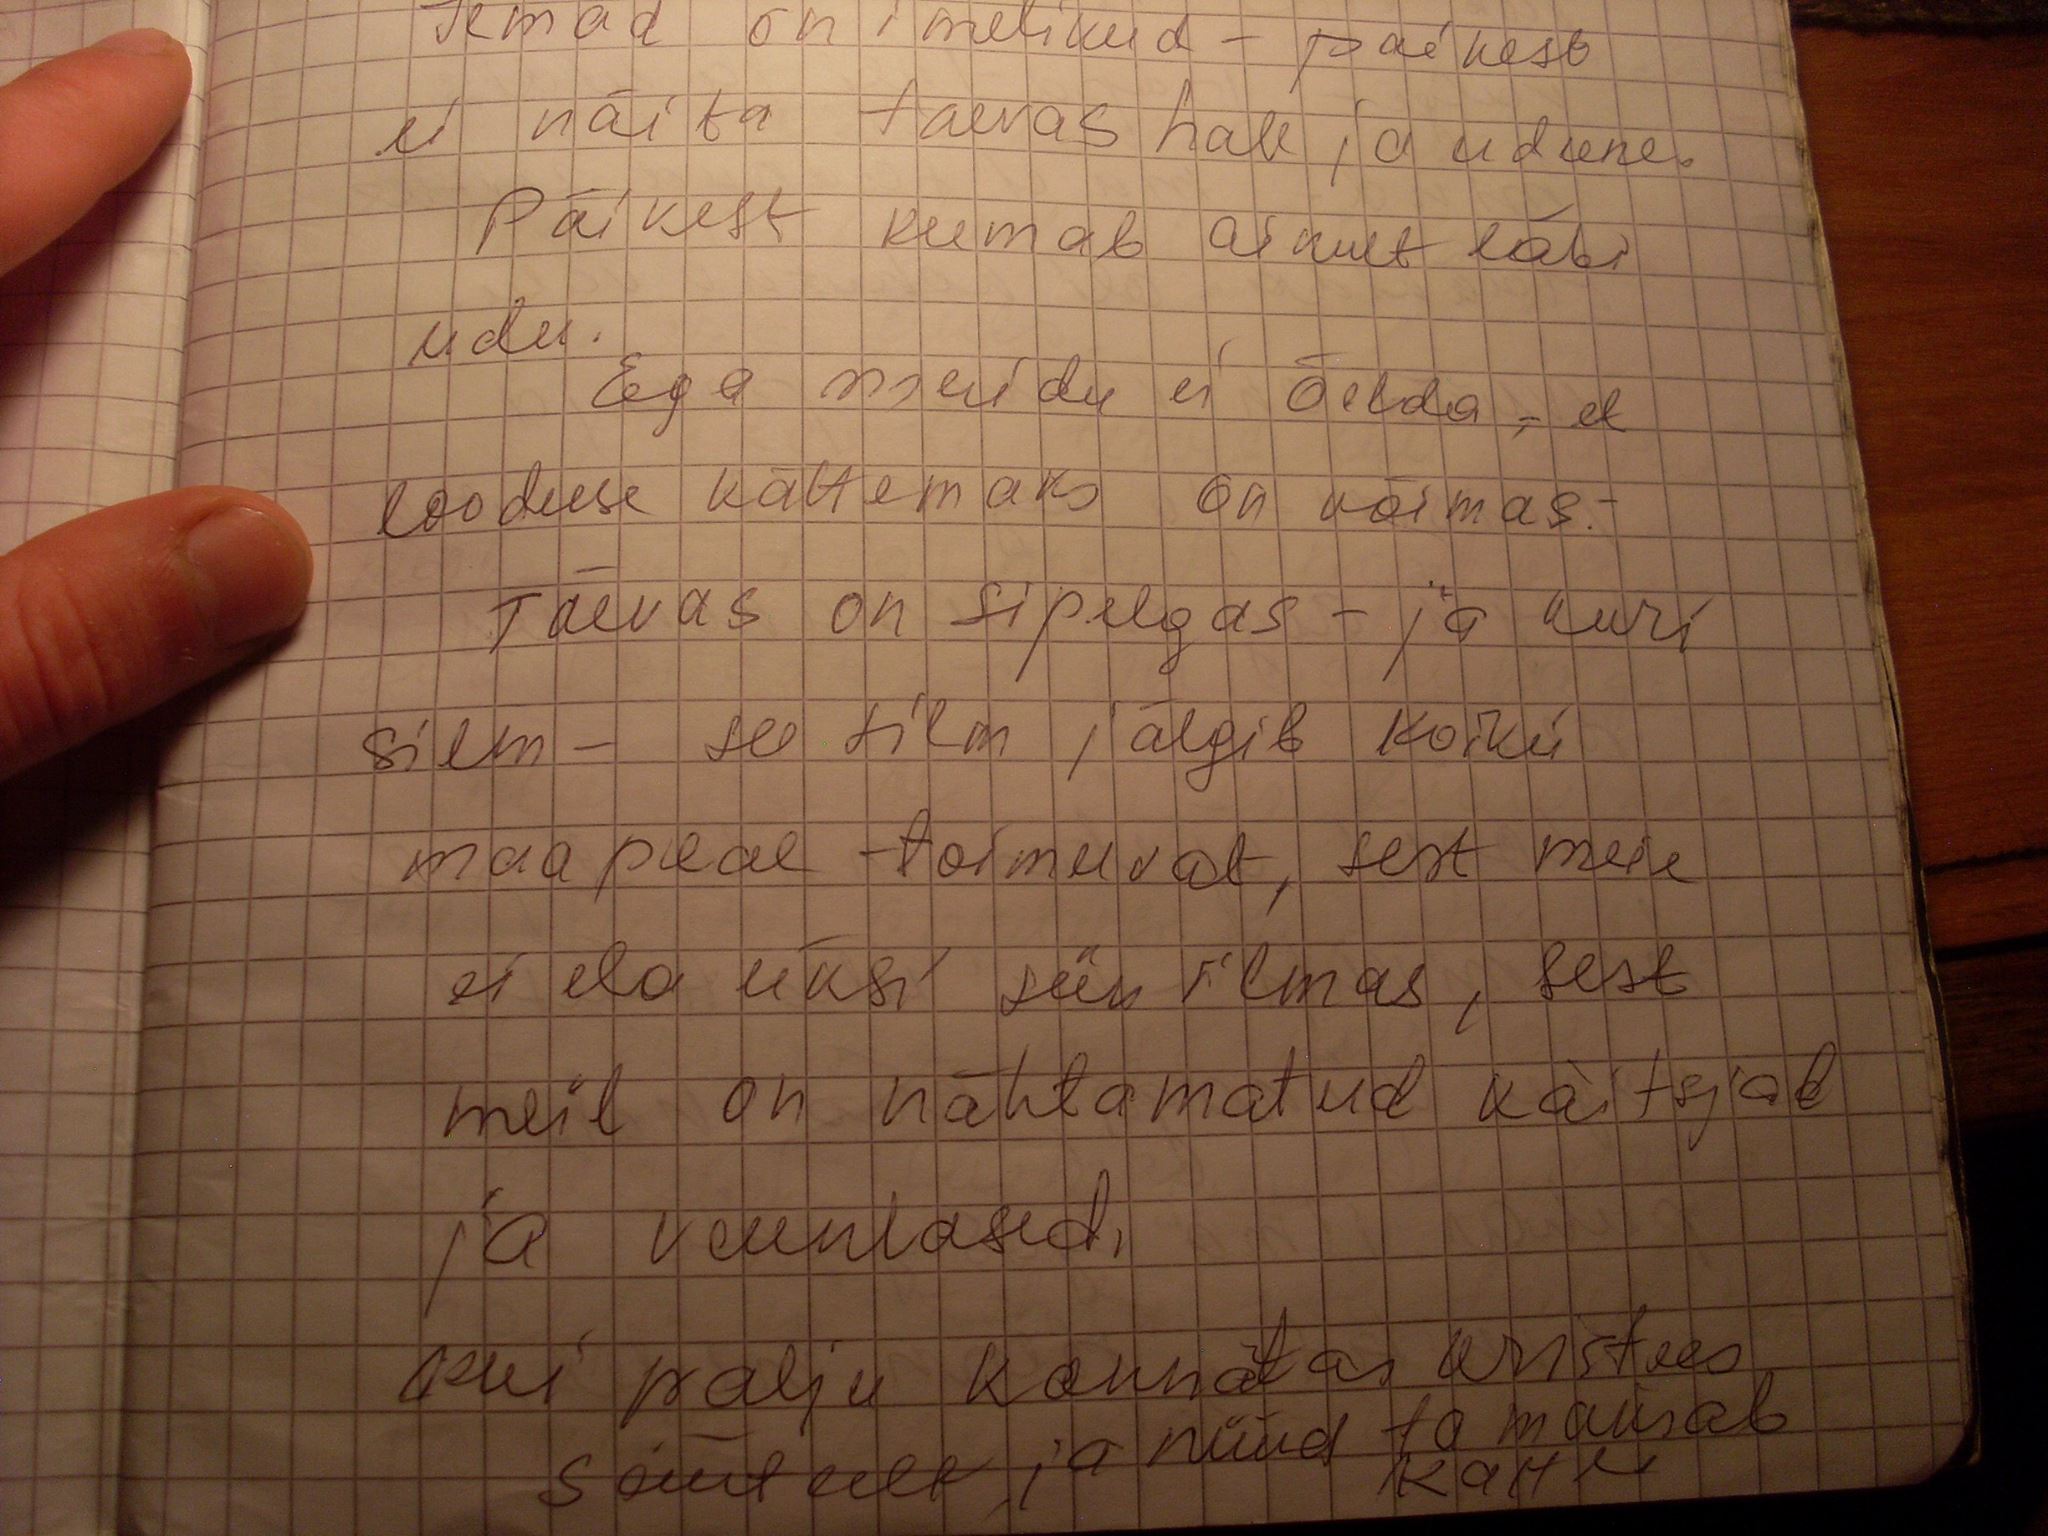 on imelikud - päikest
ei näita taevas hall ja udune.
Päikest kumab ainult läbi
udu.
Ega muidu ei öelda, et
looduse kättemaks on võimas.-
Taevas on sipelgas - ja kuri
silm - see silm jälgib kõiki
maapeal toimuvat, sest meie
ei ela üksi siin ilmas, sest
meil on nähtamatud käitsjad
ja
kui palju kannatas kristus
ja nüüd ta maksab
kätte